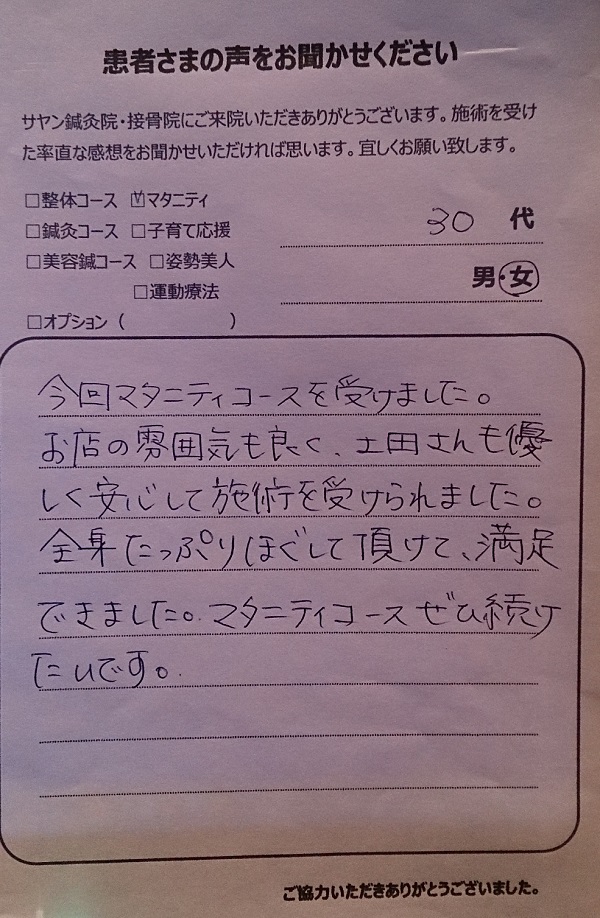 患者さまの声をお聞かせください
サヤン鍼灸院・接骨院にご来院いただきありがとうございます。施術を受け
た率直な感想をお聞かせいただければ思います。宜しくお願い致します。
□整体コース ☑マタニティ
30 代
□鍼灸コース □子育て応援
□美容鍼コース □姿勢美人
男・女
□運動療法
□オプション（ ）
今回マタニティコースを受けました。
お店の雰囲気も良く、土田さんも優
しく安心して施術を受けられました。
全身たっぷりほぐして頂けて、満足
できました。マタニティコースぜひ続け
たいです。
ご協力いただきありがとうございました。